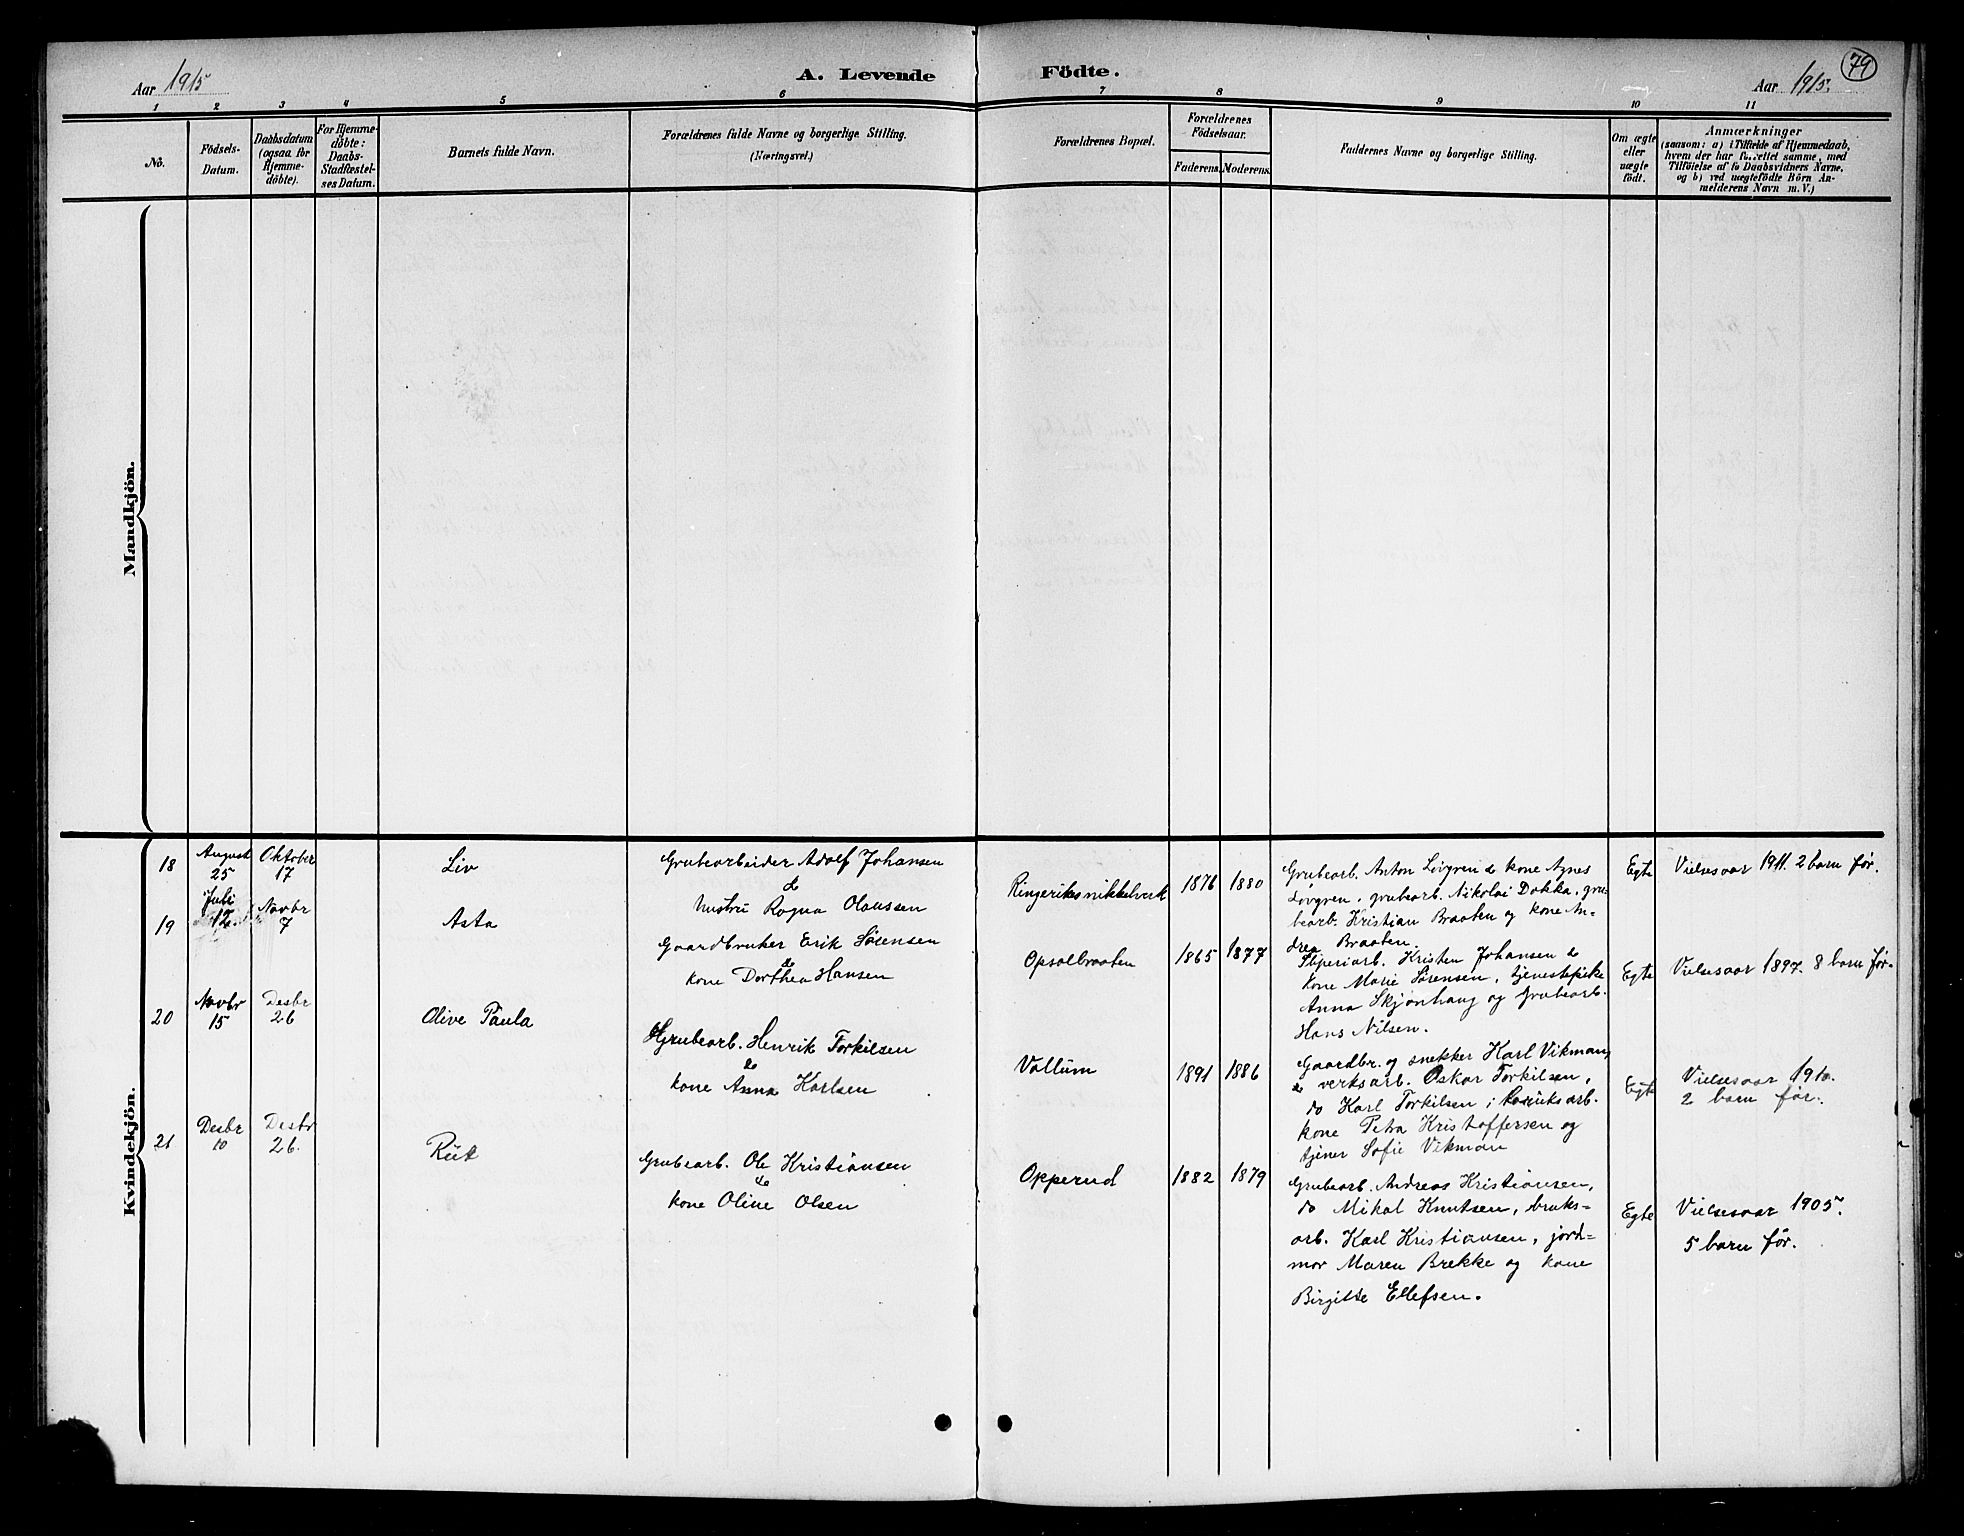 79
Aar 1915
A. Levende
Födte.
Aar 1915.
1 2 3 4 5 6 7 8 9 10 11
No.
Födsels-
Datum.
Daabsdatum
(ogsaa for
Hjemme-
döbte).
For Hjemme-
döbte:
Daabs-
Stadfæstel-
ses Datum.
Barnets fulde Navn.
Forældrenes fulde Navne og borgerlige Stilling.
(Næringsvei.)
Forældrenes Bopæl.
Forældrenes
Födselsaar.
Faderens. Moderens.
Faddernes Navne og borgerlige Stilling.
Om ægte
eller
uægte
födt.
Anmærkninger
(saasom: a) i Tilfælde af Hjemmedaab,
hvem der har forrettet samme, med
Tilföielse af to Daabsvidners Navne,
og b) ved uægtefödte Börn An-
melderens Navn m. V.)
Mandkjön.
Kvindekjön.
18
August
25
Oktober
17
Liv
Grubearbeider Adolf Johansen
&
hustru Ragna Olaussen
Ringeriksnikkelverk
1876 1880
Grubearb. Anton Lövgren & kone Agnes
Lövgren, grubearb. Nikolai Dokka, gru-
bearb. Kristian Braaten og kone An-
drea Braaten.
Egte
Vielsesaar 1911. 2 barn før.
19
Juli
12
Novbr
7
Asta
Gaardbruker Erik Sørensen
&
kone Dorthea Hansen
Opsalbraaten
1865 1877
Sliperiarb. Kristen Johansen &
kone Marie Sørensen, tjenestpike
Anna Skjønhaug og Grubearb.
Hans Nilsen.
Egte
Vielsesaar 1897. 8 barn før.
20
Novbr
15
Desbr
26
Olive Paula
Grubearb. Henrik Torkilsen
&
kone Anna Karlsen
Vollum
1891 1886
Gaardbr. og snekker Karl Vikman,
& verksarb. Oskar Torkilsen,
do Karl Torkilsen,
kone Petra Kristoffersen og
tjener Sofie Vikman
Egte
Vielsesaar 1910.
2 barn før.
21
Desbr
10
Desbr
26.
Rut
Grubearb. Ole Kristiansen
&
kone Oline Olsen
Opperud
1882 1879
Grubearb. Andreas Kristiansen,
do Mikal Knutsen, bruks-
arb. Karl Kristiansen, jord-
mor Maren Brekke og kone
Birgitte Ellefsen.
Egte
Vielsesaar 1905.
5 barn før.